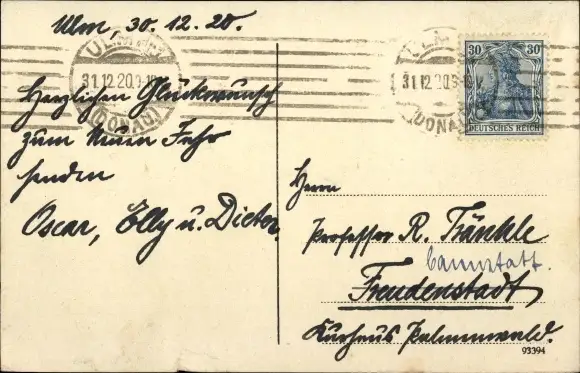 Ulm 30.12.20.
ULM
31.12.20.9-10
(DONAU)
Herzlichen Glückwunsch
zum Neuen Jahr
senden
Oscar, Elly u. Dieter.
ULM
31.12.20.9-10
(DONAU)
30 30
DEUTSCHES REICH
Herrn
Professor R. Tränkle
Cannstatt.
Freudenstadt
Kurhaus Palmenwald.
93394